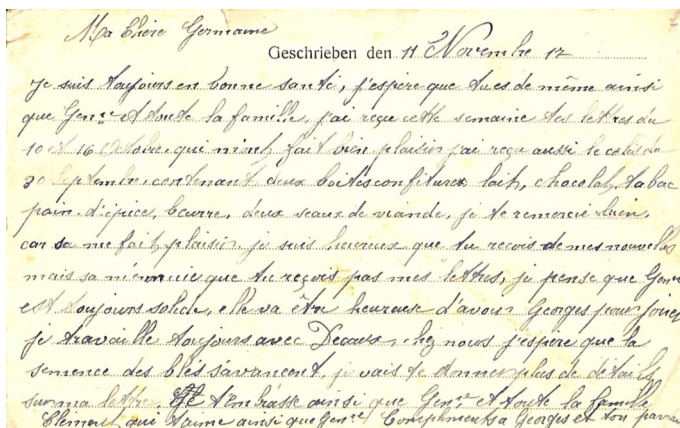 Ma Chère Germaine
Geschrieben den 11 Novembre 17
Je suis toujours en bonne santé, j'espère que tu es de même ainsi
que Gen.ve et toute la famille, j'ai reçu cette semaine tes lettres du
10 et 16 Octobre qui m'ont fait bien plaisir j'ai reçu aussi le colis du
30 Septembre contenant deux boites confitures lait, chocolat, tabac
pain d'épices, beurre, deux seaux de viande, je te remercie bien,
car sa me fait plaisir je suis heureux que tu recois de mes nouvelles
mais sa m'ennuie que tu reçois pas mes lettres, je pense que Gen.ve
est toujours solide, elle va être heureuse d'avoir Georges pour jouer
je travaille toujours avec chez nous j'espère que la
semence des blés s'avancent, je vais te donner plus de détails
sur ma lettre. t'embrasse ainsi que Gen.ve et toute la famille
Clément qui t'aime ainsi que Gen.ve Compliments a Georges et son